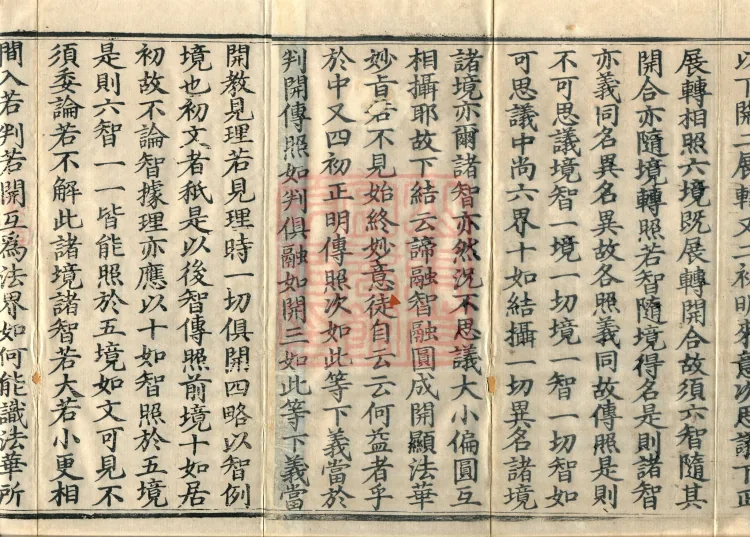 以下開二展轉又二初明來意次思議下正
展轉相照六境既展轉開合故須六智隨其
開合亦隨境轉照若智隨境得名是則諸智
亦義同名異名異故各照義同故傳照是則
不可思議境智一境一切境一智一切智如
可思議中尚六界十如結攝一切異名諸境
諸境亦爾諸智亦然況不思議大小偏圓互
相攝耶故下結云諦融智融圓成開顯法華
妙旨若不見始終妙意徒自云云何益者乎
於中又四初正明傳照次如此等下義當於
判開傳照如判俱融如開三如此等下義當
開教見理若見理時一切俱開四略以智例
境也初文者秖是以後智傳照前境十如居
初故不論智據理亦應以十如智照於五境
是則六智一一皆能照於五境如文可見不
須委論若不解此諸境諸智若大若小更相
間入若判若開互為法界如何能識法華所